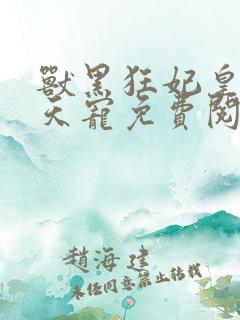 獸黑狂妃皇
天寵免費閱
趙海建
未經同意禁止轉載